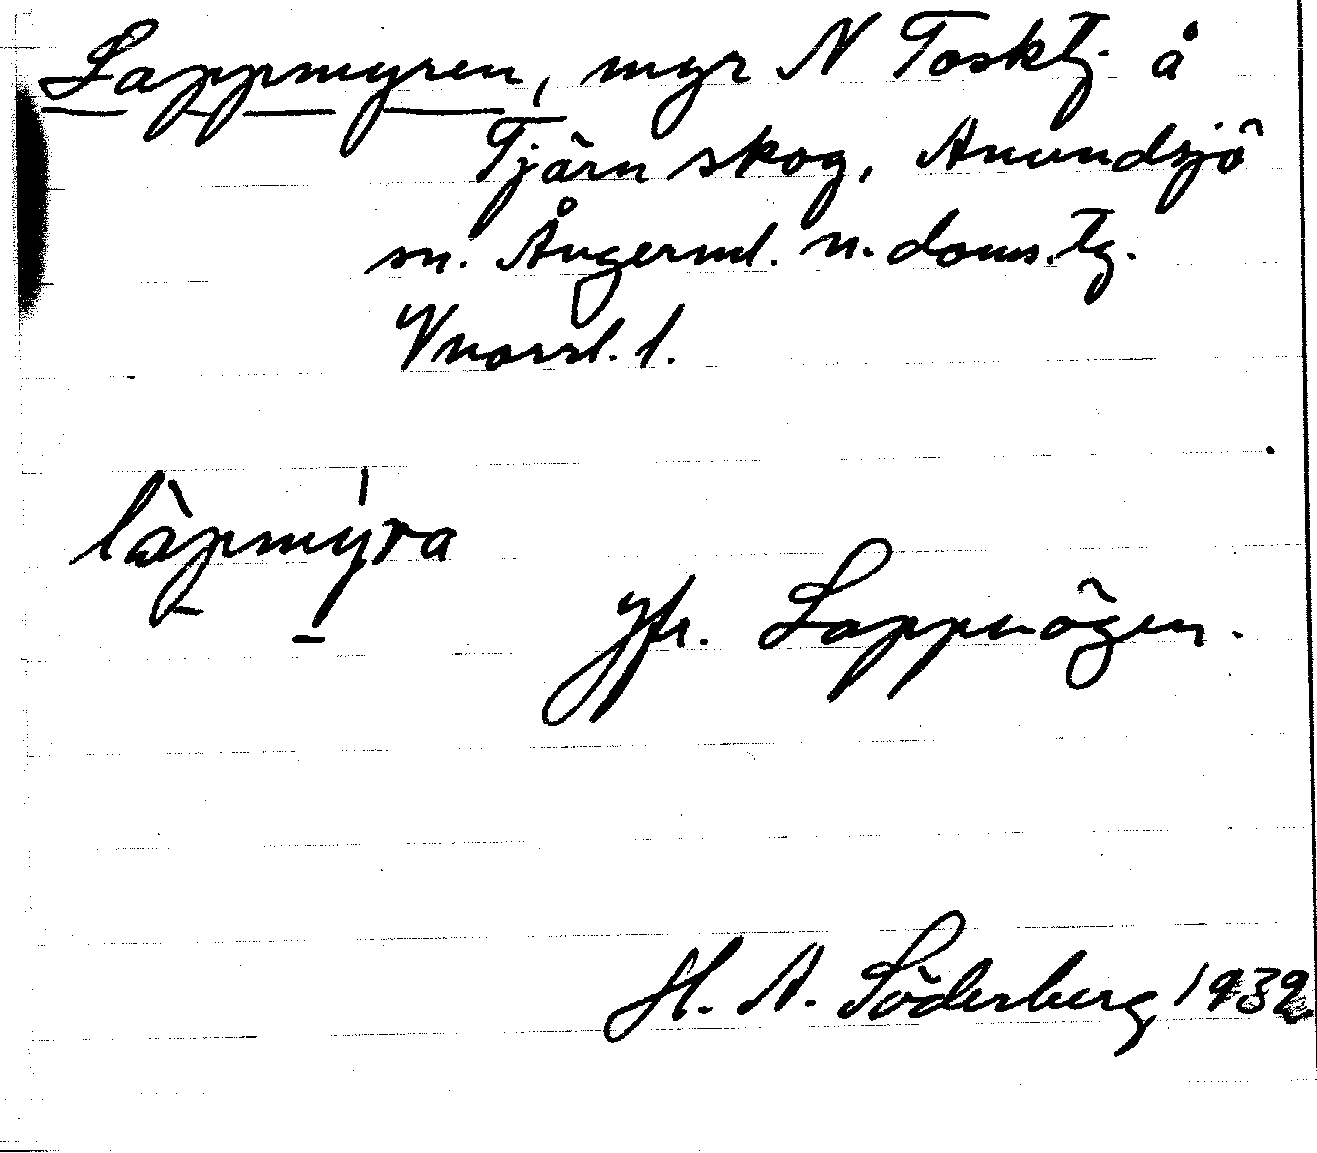 Lappmyren, myr N Tosktj. å
Tjärn skog, Anundsjö
sn. Ångerml. n. doms. tg.
Vnorrl. l.
làpmyra
Jfr. Lappmögen.
H. A. Söderberg 1932